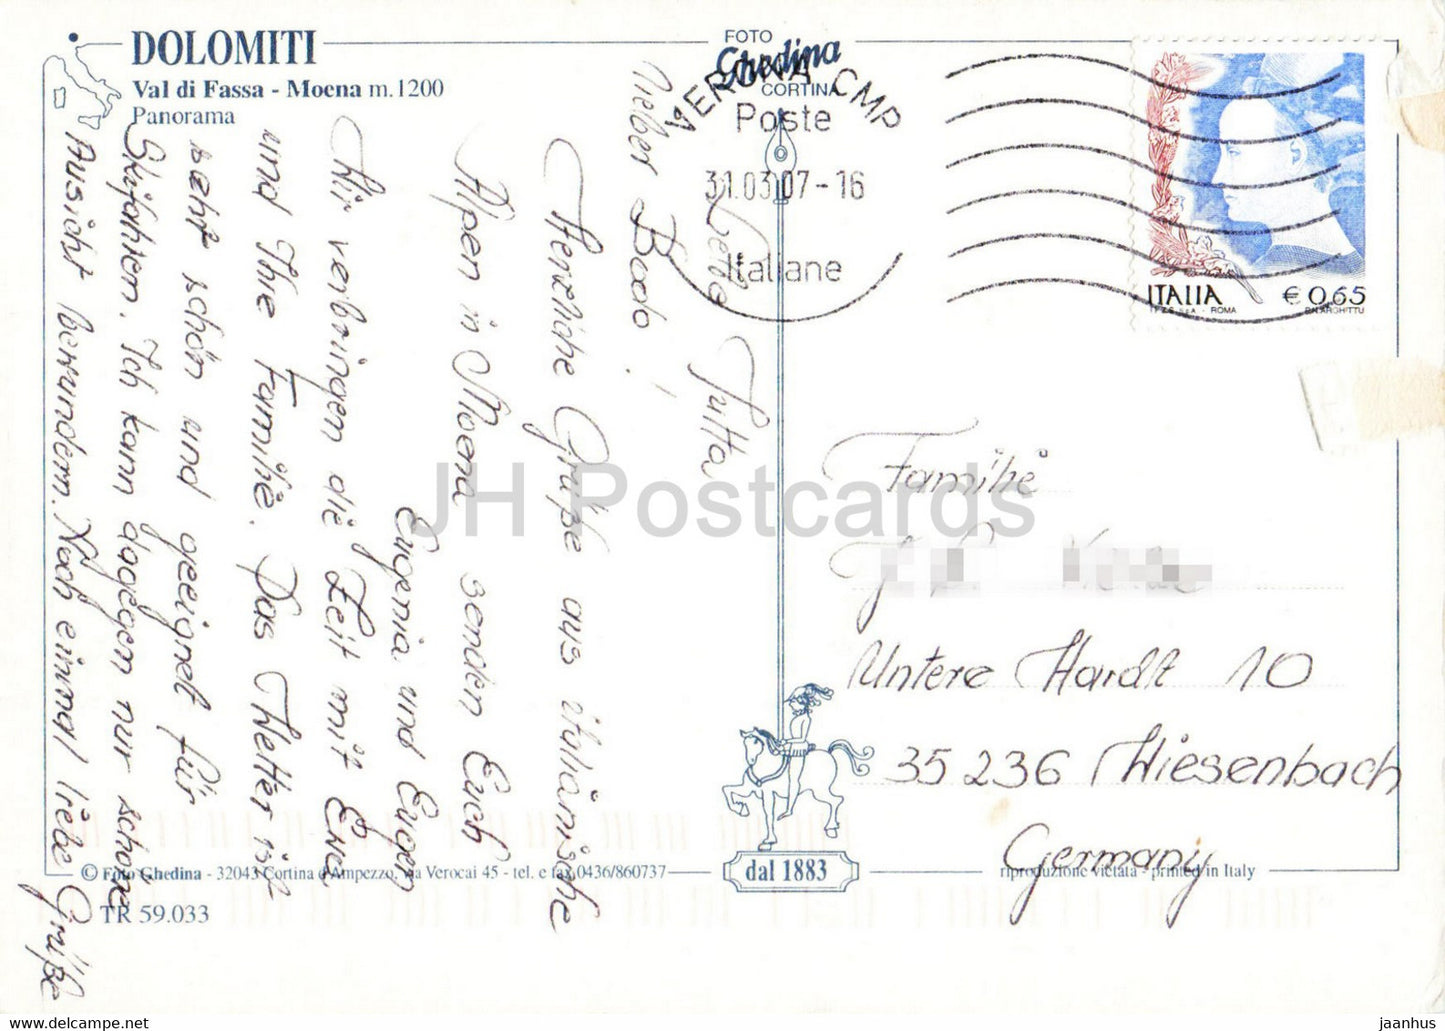 DOLOMITI
Val di Fassa - Moena m.1200
Panorama
FOTO
Ghedina
CORTINA
VERONA CMP
Poste
31.03.07-16
Italiane
ITALIA € 0,65
I.P.Z.S. S.p.A. - ROMA
Jutta
Lieber Bodo!
Herzliche Grüße aus italiänische
Alpen in Moena senden Euch
Eugenia und Eugen
Wir verbringen die Zeit mit Eva
und Ihre Familie. Das Wetter ist
sehr schön und geeignet für
Skifahren. Ich kann dagegen nur schöne
Aussicht bewundern. Noch einmal liebe Grüße
Familie
Untere Hardt 10
35236 Wiesenbach
Germany
dal 1883
© Foto Ghedina - 32043 Cortina d'Ampezzo, via Verocai 45 - tel. e fax 0436/860737
riproduzione vietata - printed in Italy
TR 59.033
JH Postcards
https://www.delcampe.net
jaanhus